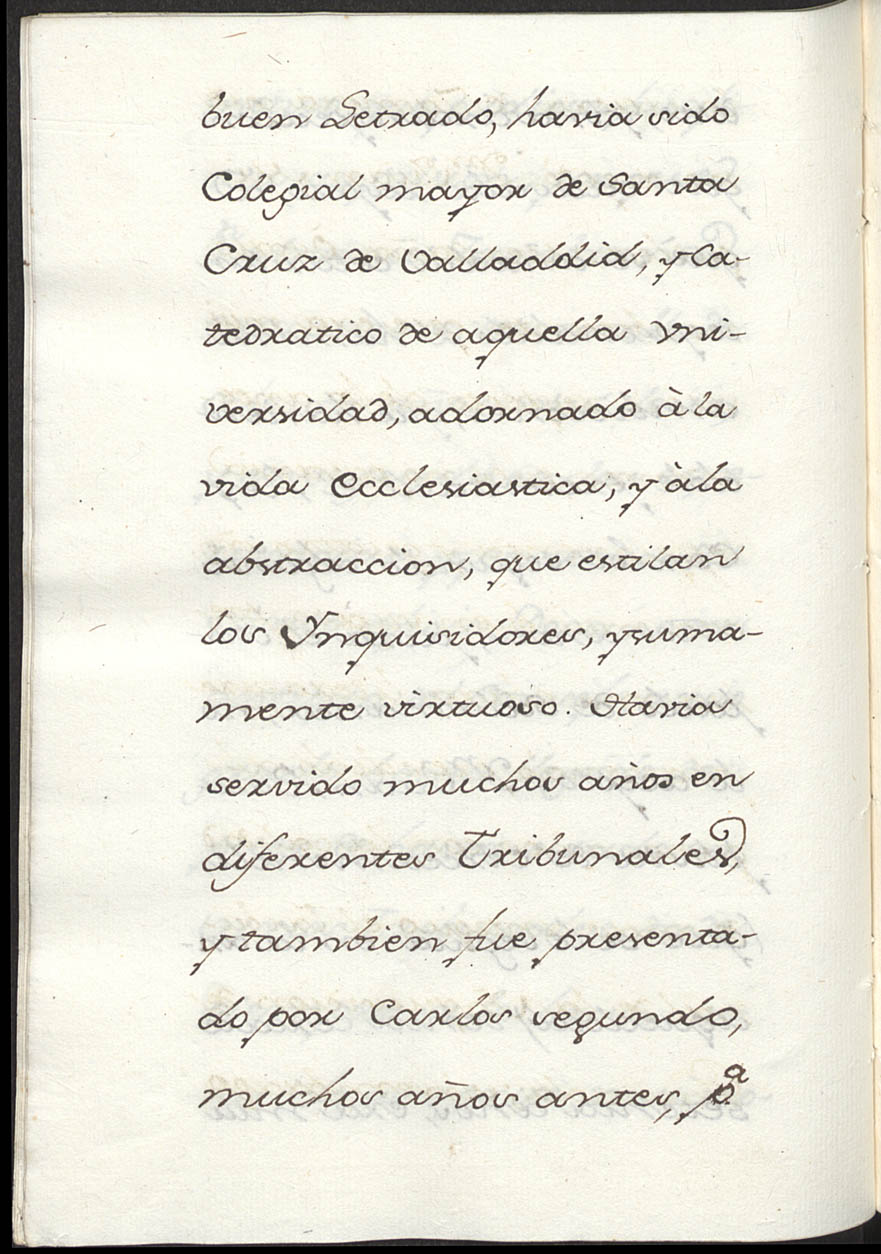 buen Letrado, havia sido
Colegial mayor de Santa
Cruz de Valladdid, y Ca-
tedratico de aquella Vni-
versidad, adornado à la
vida Ecclesiastica, y à la
abstraccion, que estilan
los Ynquisidores, y suma-
mente virtuoso. Havia
servido muchos años en
diferentes Tribunales,
y tambien fue presenta-
do por Carlos segundo,
muchos años antes, pª